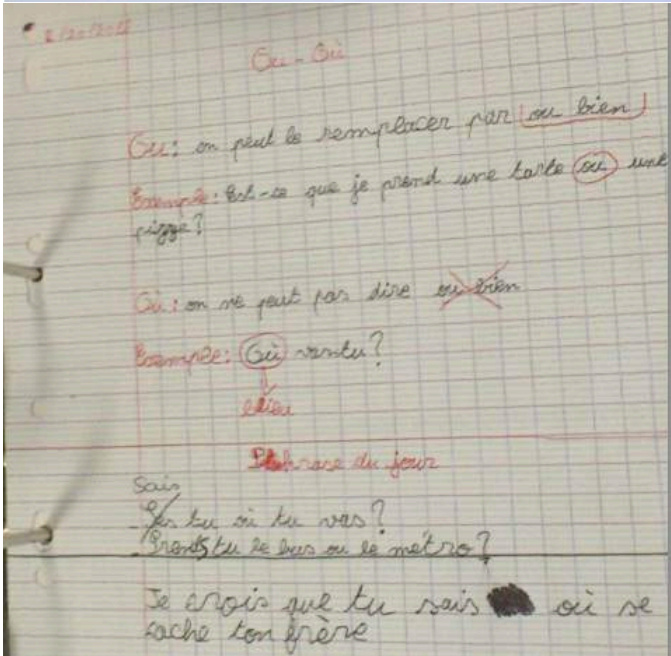 Ou - Où
Ou: on peut le remplacer par ou bien
Exemple: Est-ce que je prend une tarte ou une
pizze?
Où: on ne peut pas dire ou bien
Exemple: Où vas tu?
lieu
Phrase du jour
Sais
tu où tu vas?
Prends tu le bus ou le métro?
Je crois que tu sais où se
cache ton frère